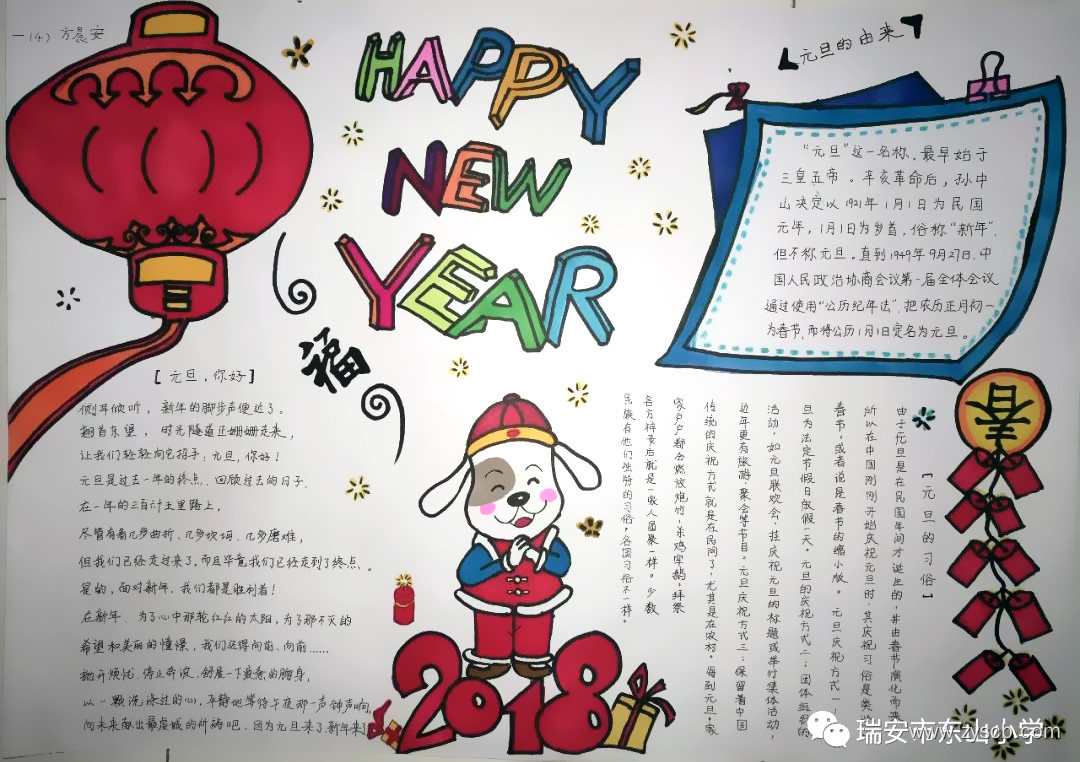 一(4) 方晨安
HAPPY
NEW
YEAR
福
【元旦的由来】
“元旦”这一名称，最早始于
三皇五帝。辛亥革命后，孙中
山决定以1921年1月1日为民国
元年，1月1日为岁首，俗称“新年”，
但不称元旦。直到1949年9月27日，中
国人民政治协商会议第一届全体会议
通过使用“公历纪年法”，把农历正月初一
为春节，而将公历1月1日定名为元旦。
【元旦，你好】
侧耳倾听，新年的脚步声便近了。
翘首东望，时光隧道正姗姗走来，
让我们轻轻向它招手：元旦，你好！
元旦是过去一年的终点。回顾过去的日子，
在一年的三百计里路上，
尽管有着几多曲折、几多坎坷、几多磨难，
但我们已经走过来了，而且毕竟我们已经走到了终点。
是的，面对新年，我们都是胜利者！
在新年，为了心中那轮红红的太阳，为了那不灭的
希望和美丽的憧憬，我们还得向前、向前……
抛开烦忧，停止奔波，舒展一下疲惫的腰身，
以一颗洗涤过的心，平静地等待午夜那一声钟声响，
向未来献出最虔诚的祈祷吧，因为元旦来了新年来了
春
【元旦的习俗】
由于元旦是在民国年间才诞生的，并由春节演化而来
所以在中国刚刚开始庆祝元旦时，其庆祝习俗是类
春节，或者说是春节的缩小版。元旦庆祝方式一，
旦为法定节假日放假一天。元旦的庆祝方式二：团体组织的
活动，如元旦联欢会，挂庆祝元旦的标题或举行集体活动，
近年更有旅游、聚会等节目。元旦庆祝方式三：保留着中国
传统的庆祝方式就是在民间了，尤其是在农村。每到元旦，家
家户户都会燃放炮竹，杀鸡宰鹅，拜祭
各方神灵后就是一家人团聚一样。少数
民族有他们独特的习俗，各国习俗不一样。
2018
瑞安市东山小学
www.zyscb.com